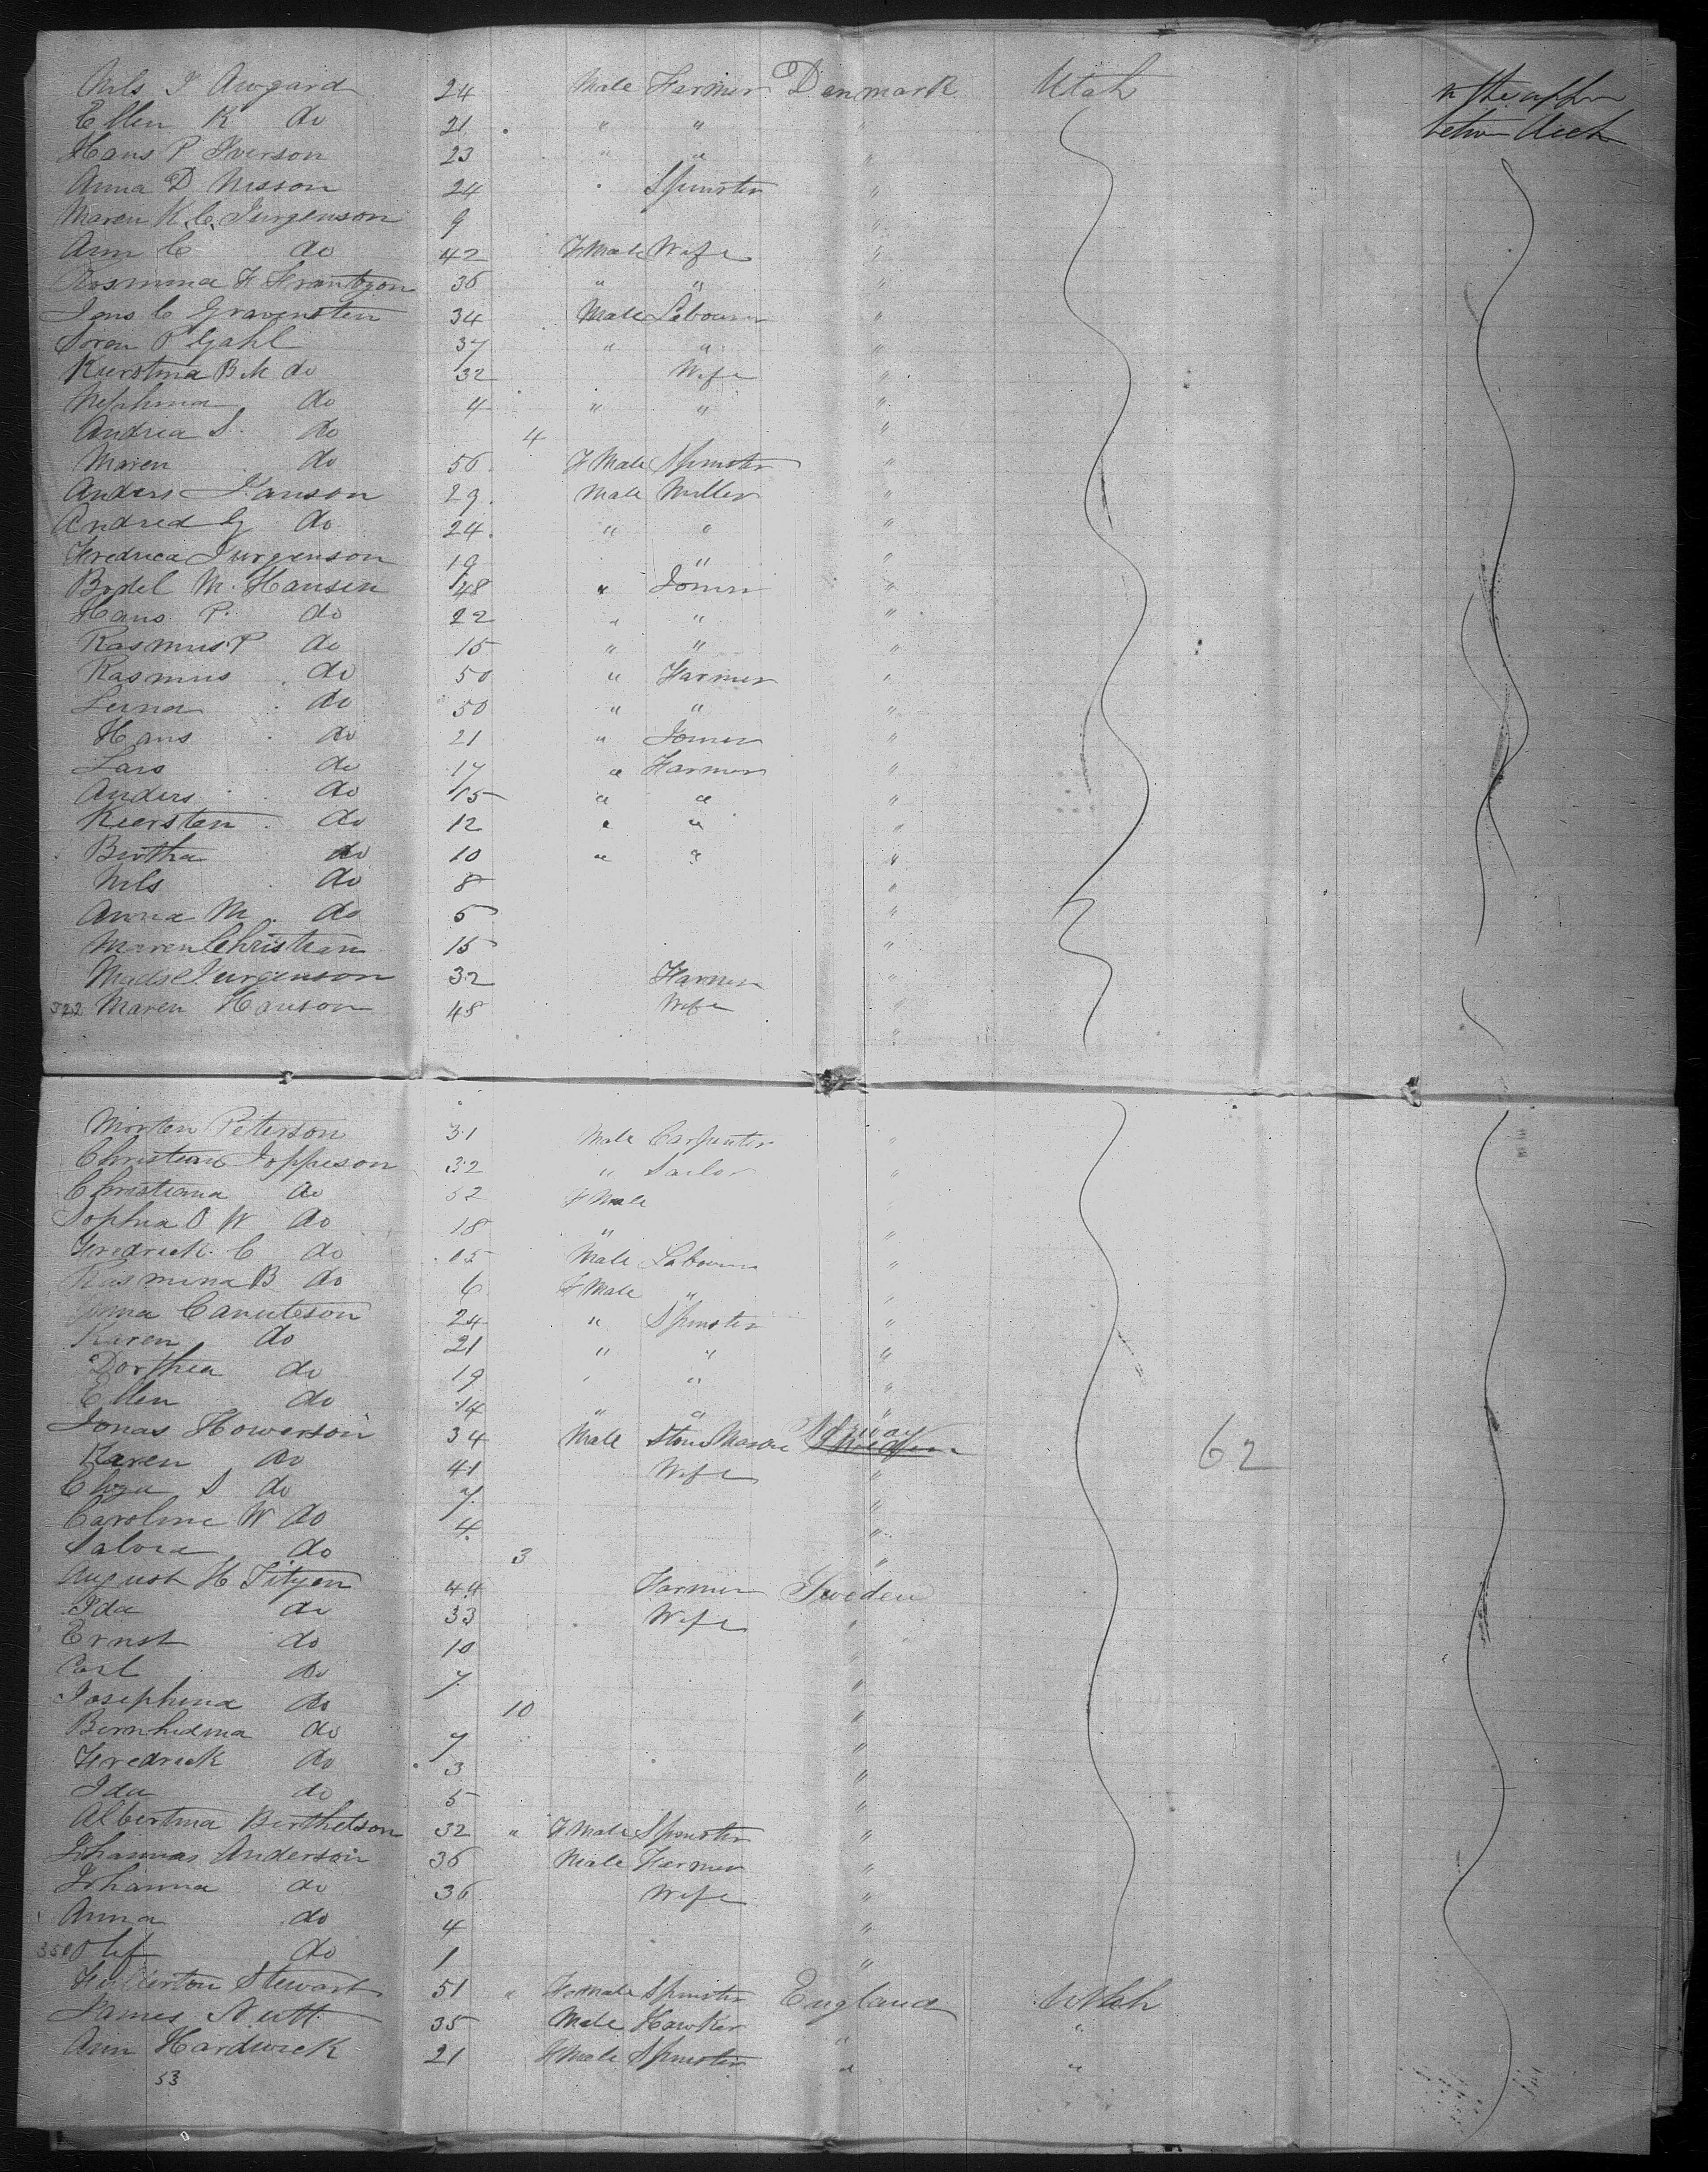 Nils I Awgard 24 Male Farmer Denmark Utah in the upper
Ellen K do 21 " " " between deck
Hans P Iverson 23 " " "
Anna D Nisson 24 " Spinster "
Maren K. C. Jurgenson 9 "
Ann C do 42 F Male Wife "
Rasmina F Frantzon 36 " " "
Jens C Gravensten 34 Male Labourer "
Soren P Gahl 37 " " "
Kierstina B M do 32 Wife "
Nephina do 4 " " "
Andrea S. do 4 "
Maren do 56 F Male Spinster "
Anders Janson 29 Male Miller "
Andred G do 24 " " "
Fredrica Jurgenson 19 " "
Bodel M. Hansen 48 " Joiner "
Hans P. do 22 " " "
Rasmus P do 15 " " "
Rasmus do 50 " Farmer "
Lerna do 50 " " "
Hans do 21 " Joiner "
Lars do 17 " Farmer "
Anders do 15 " " "
Kiersten do 12 " " "
Birtha do 10 " " "
Nils do 8 "
Anna M. do 5 "
Maren Christian 15 "
Mads Jurgenson 32 Farmer "
322 Maren Hanson 48 Wife "
"
Morten Peterson 31 Male Carpenter "
Christian Joppeson 32 " Sailor "
Christiana do 52 F Male
Sophia O W do 18 " "
Fredrick C do 15 Male Labourer "
Rasmina B do 6 F Male " "
Anna Canuteson 24 " Spinster "
Karen do 21 " " "
Dorthea do 19 " " "
Ellen do 14 " " "
Jonas Howerson 34 Male Stone Mason Norway 62
Karen do 41 Wife "
Eliza S do 7 "
Caroline W do 4 "
Salvia do 3 "
August H Titjen 44 Farmer Sweden
Ida do 33 Wife "
Ernst do 10 "
Carl do 7 "
Josephina do 10 "
Bernhedina do 7 "
Fredrick do 3 "
Ida do 5 "
Albertina Berthelson 32 " F Male Spinster "
Johannas Anderson 36 Male Farmer "
Johanna do 36 Wife "
Anna do 4 "
350 Olif do 1 "
Fullerton Stewart 51 " Female Spinster England Utah
James Nutt 35 Male Hawker " "
Ann Hardwick 21 F Male Spinster " "
53